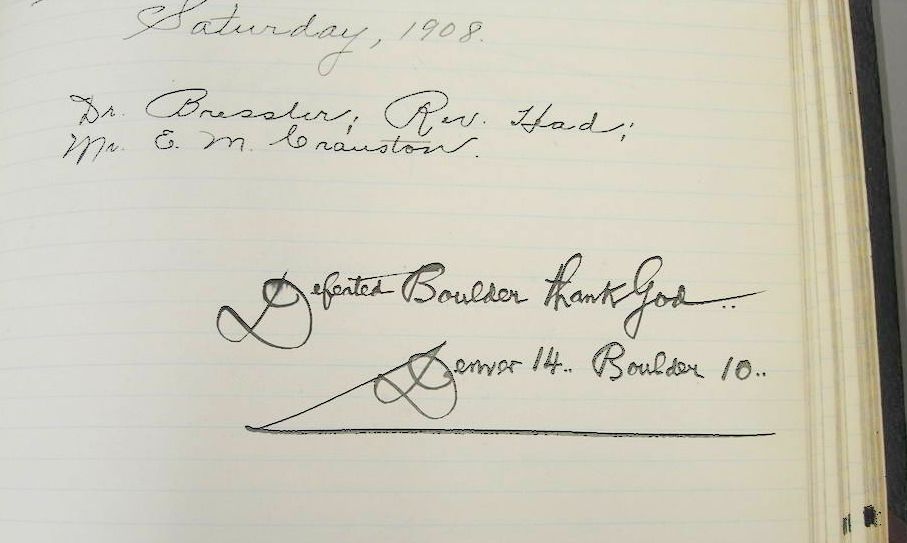 Saturday, 1908.
Dr. Bressler; Rev. Had;
Mr. E. M. Cranston.
Defeated Boulder thank God..
Denver 14.. Boulder 10..